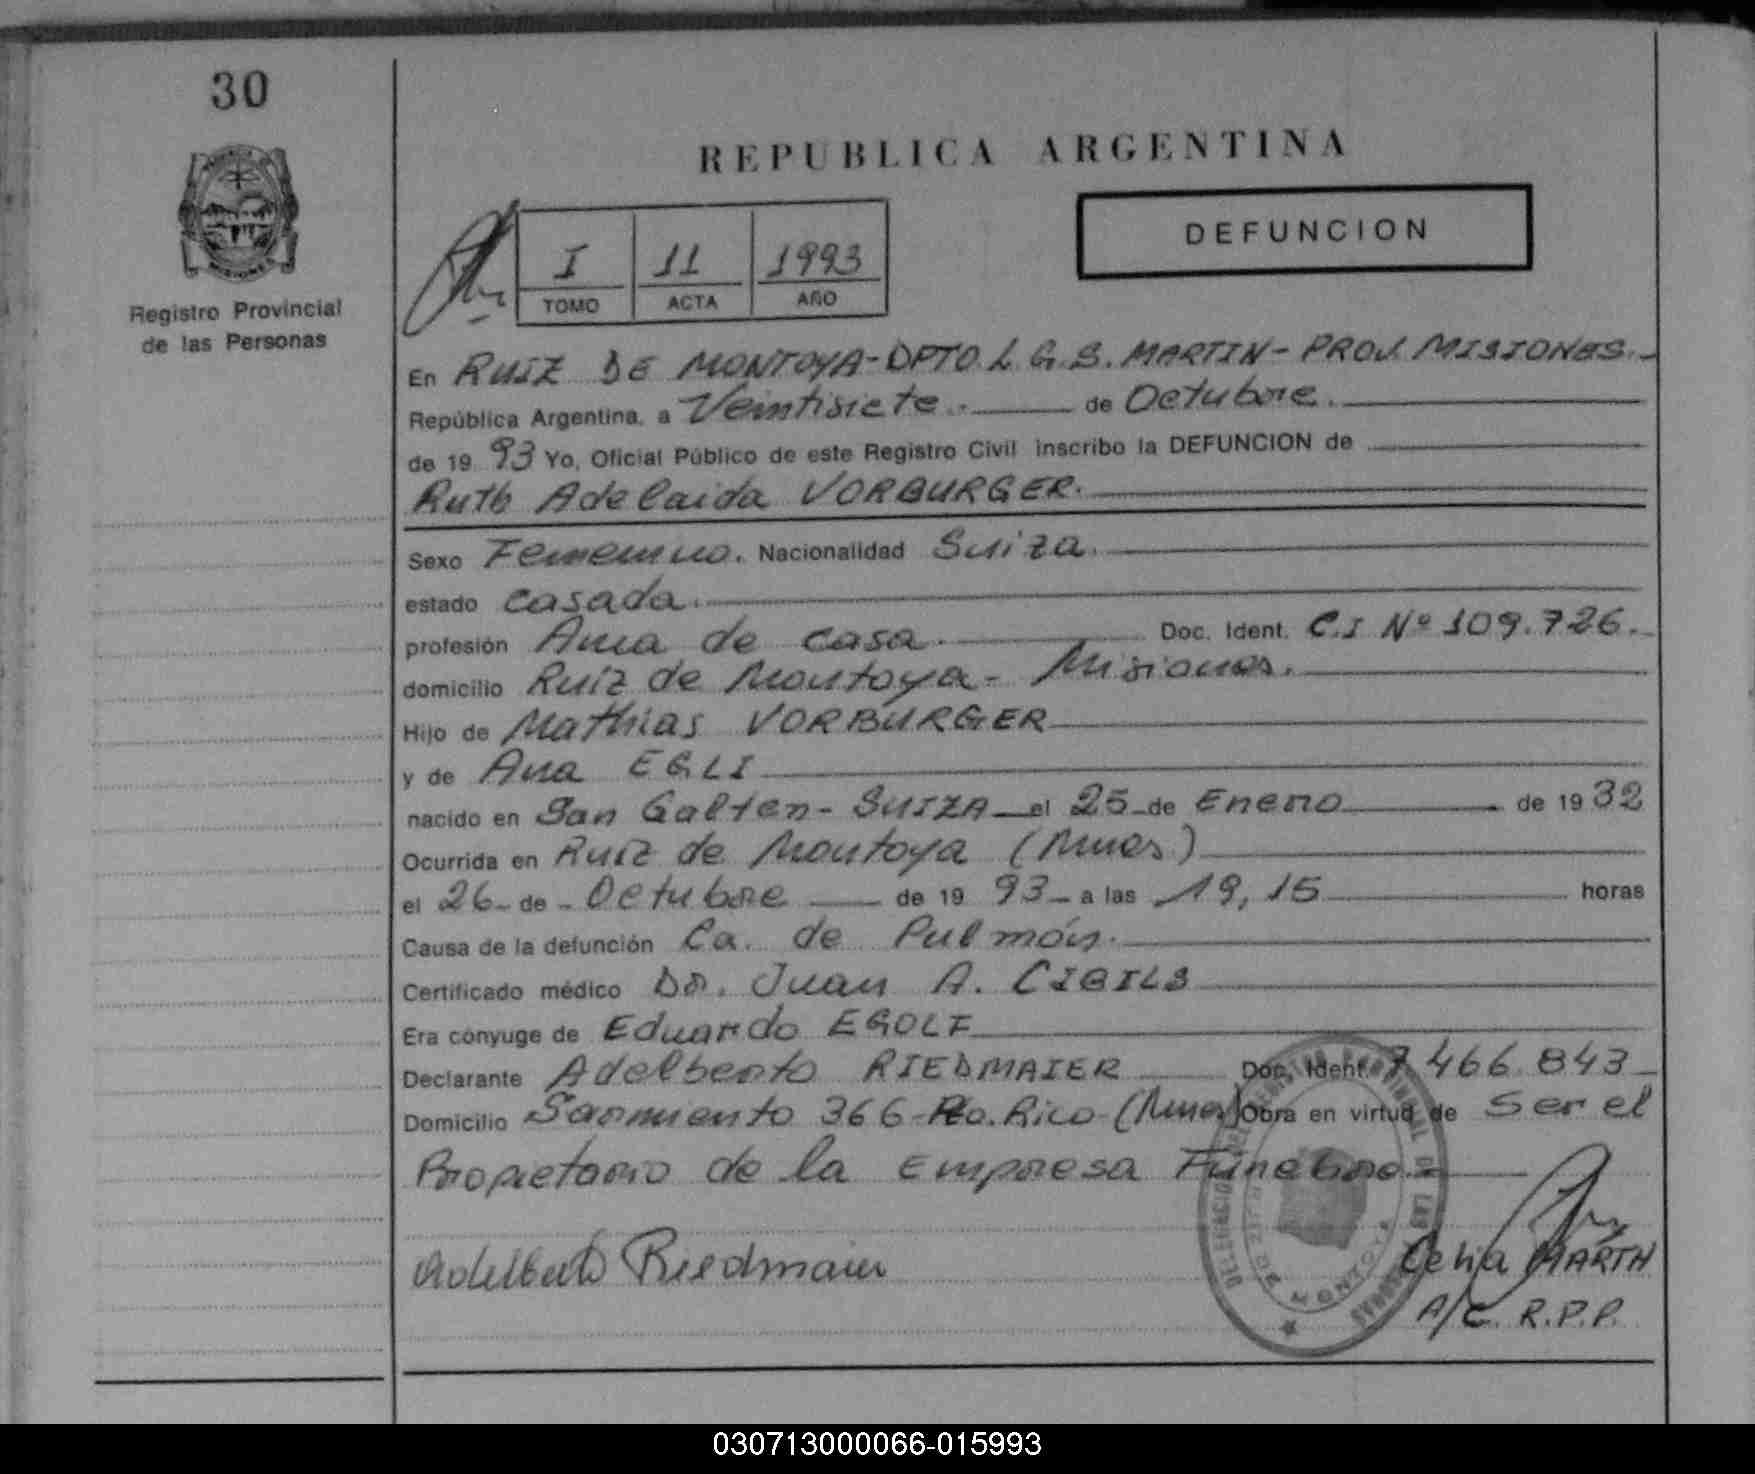 30
REPUBLICA ARGENTINA
DEFUNCION
I 11 1993
TOMO ACTA AÑO
Registro Provincial
de las Personas
En RUIZ DE MONTOYA-DPTO L.G.S. MARTIN-PROV. MISIONES.-
República Argentina, a Veintisiete.- de Octubre.
de 19 93 Yo, Oficial Público de este Registro Civil inscribo la DEFUNCION de
Ruth Adelaida VORBURGER.
Sexo Femenino. Nacionalidad Suiza.
estado casada.
profesión Ama de casa. Doc. Ident. C.I Nº 109.726.-
domicilio Ruiz de Montoya- Misiones.
Hijo de Mathias VORBURGER
y de Ana EGLI
nacido en San Galten- SUIZA el 25 de Enero de 19 32
Ocurrida en Ruiz de Montoya (Mnes)
el 26 de Octubre de 19 93 a las 19,15 horas
Causa de la defunción Ca. de Pulmón.
Certificado médico Dr. Juan A. CIBILS
Era cónyuge de Eduardo EGOLF
Declarante Adelberto RIEDMAIER Doc. Ident. 7.466.843
Domicilio Sarmiento 366-Pto. Rico-(Mnes) Obra en virtud de Ser el
Propietario de la Empresa Funebre.-
Adelberto Riedmaier
Celia MARTH
A/C. R.P.P.
030713000066-015993